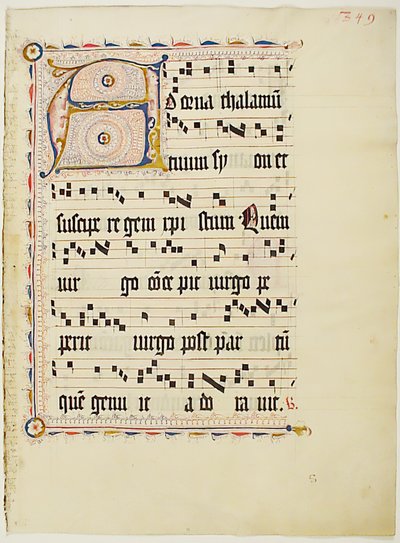 349
Adorna thalamū
tuum sy on et
suscipe re gem xpi stum Quem
uir go cōce pit uirgo pe
perit uirgo post par tū
quē genu it a do ra uit. V.